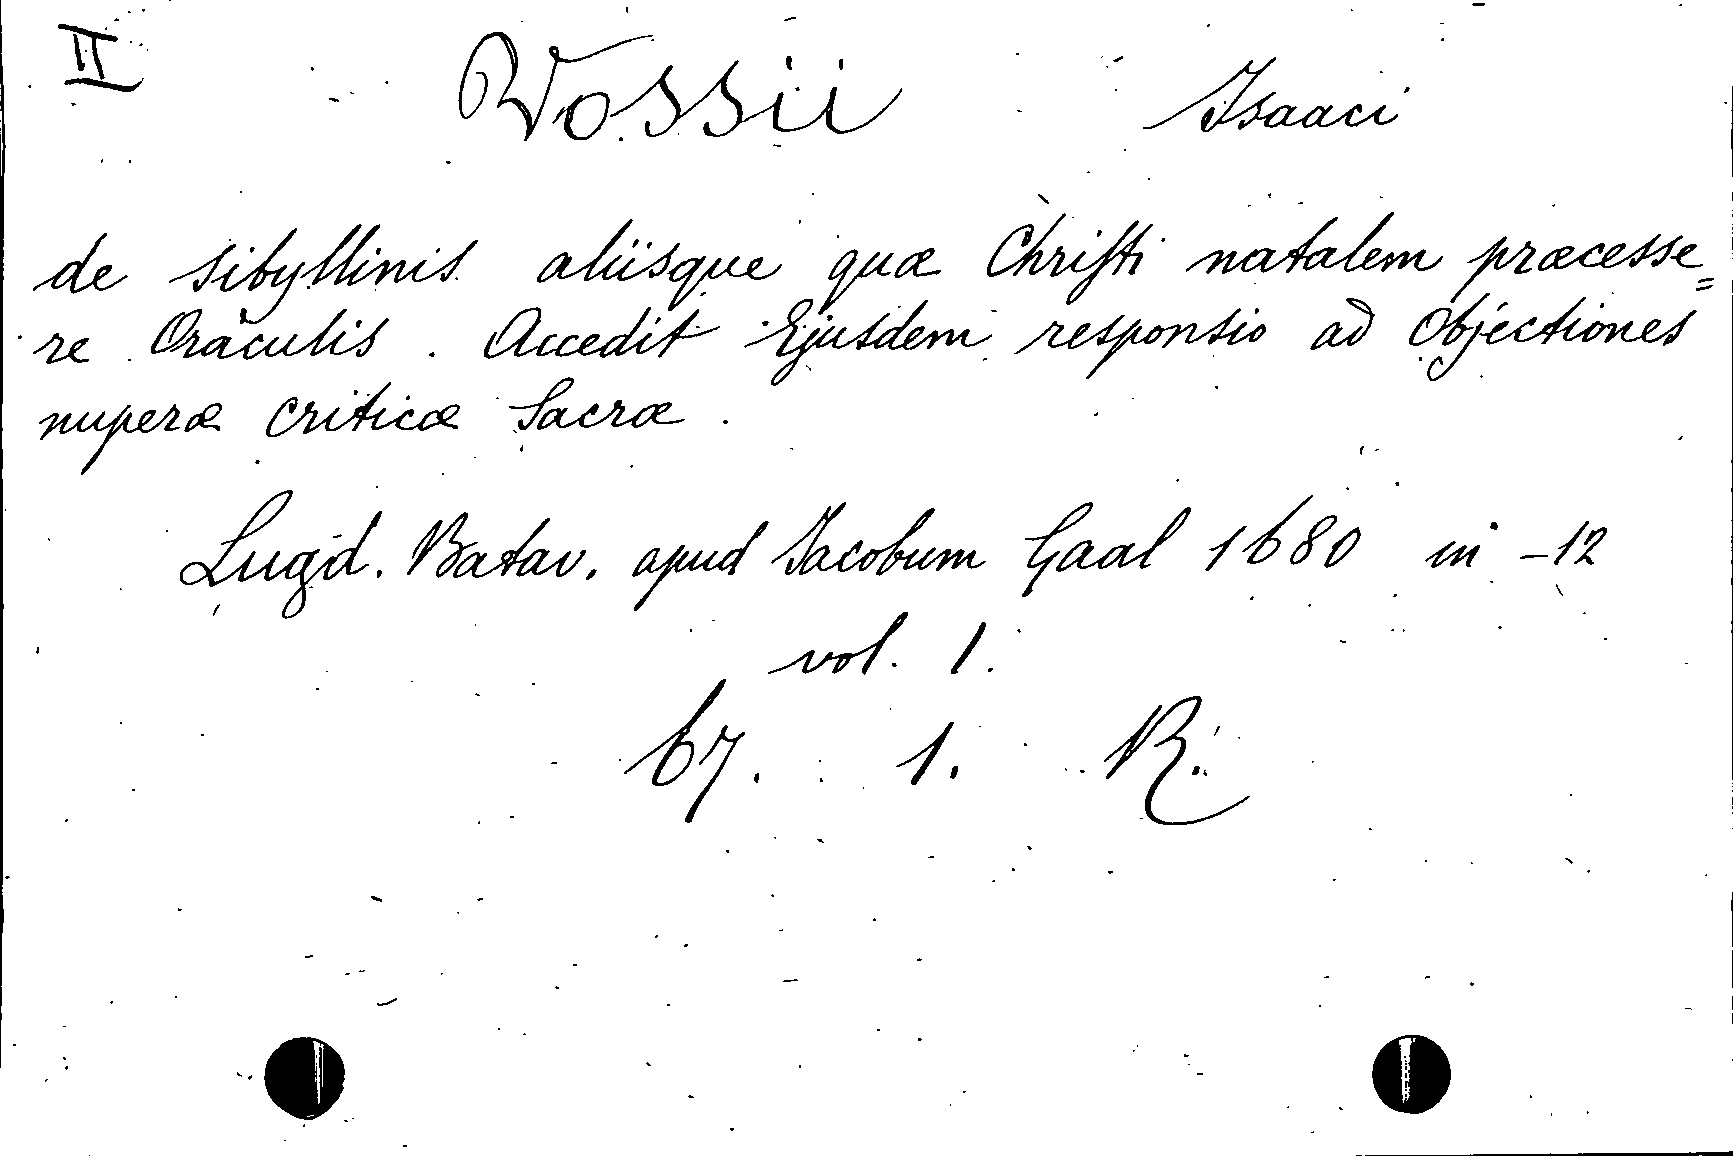 II Vossii Isaaci
de sibyllinis aliisque quæ Christi natalem præcesse=
re Oraculis. Accedit Ejusdem responsio ad Objectiones
nuperæ criticæ Sacræ.
Lugd. Batav. apud Jacobum Gaal 1680 in-12
vol. 1.
67. 1. R.